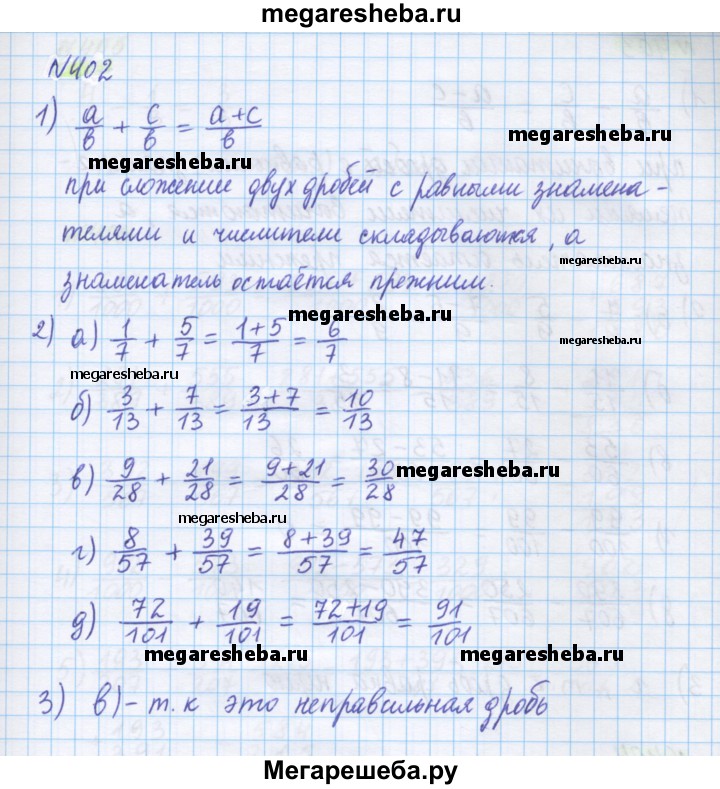 megaresheba.ru
N402
1) a/b + c/b = a+c/b
megaresheba.ru
megaresheba.ru
при сложение двух дробей с равными знамена-
телями и числители складываются, а
megaresheba.ru
знаменатель остаётся прежним.
megaresheba.ru
2) а) 1/7 + 5/7 = 1+5/7 = 6/7
megaresheba.ru
megaresheba.ru
б) 3/13 + 7/13 = 3+7/13 = 10/13
в) 9/28 + 21/28 = 9+21/28 = 30/28
megaresheba.ru
megaresheba.ru
г) 8/57 + 39/57 = 8+39/57 = 47/57
д) 72/101 + 19/101 = 72+19/101 = 91/101
megaresheba.ru
megaresheba.ru
3) в) - т.к это неправильная дробь
Мегарешеба.ру